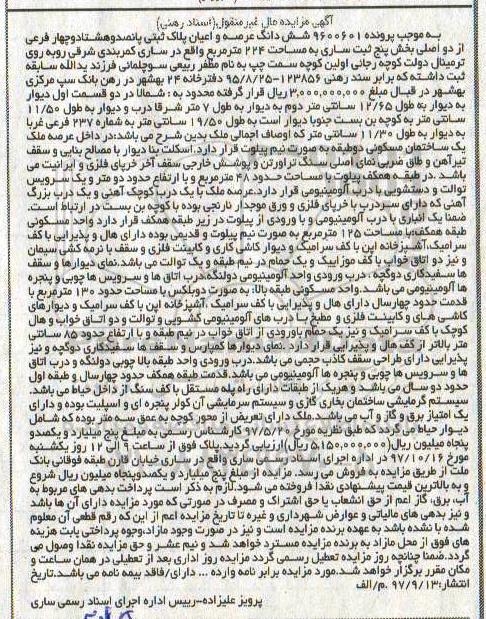 آگهی مزایده مال غیرمنقول(اسناد رهنی)
به موجب پرونده ۹۶۰۰۶۰۱ شش دانگ عرصه و اعیان پلاک ثبتی پانصدوهشتادوچهار فرعی
از دو اصلی بخش پنج ثبت ساری به مساحت ۲۲۴ مترمربع واقع در ساری کمربندی شرقی روبه روی
ترمینال دولت کوچه رجائی اولین کوچه سمت چپ به نام مظفر ربیعی سوچلمائی فرزند یدالله سابقه
ثبت داشته که برابر سند رهنی ۱۲۳۸۵۶-۹۵/۸/۲۵ دفترخانه ۲۴ بهشهر در رهن بانک سپ مرکزی
بهشهر در قبال مبلغ ۳,۰۰۰,۰۰۰,۰۰۰ ریال قرار گرفته محدود به: شمالا در دو قسمت اول دیوار
به دیوار به طول ۱۲/۶۵ سانتی متر دوم به دیوار به طول ۷ متر شرقا درب و دیوار به طول ۱۱/۵۰
سانتی متر به کوچه بن بست جنوبا دیوار است به طول ۱۹/۵۰ سانتی متر به شماره ۲۳۷ فرعی غربا
به دیوار به طول ۱۱/۳۰ سانتی متر که اوصاف اجمالی ملک بدین شرح می باشد:در داخل عرصه ملک
یک ساختمان مسکونی دوطبقه به صورت نیم پیلوت قرار دارد.اسکلت بنا دیوار با مصالح بنایی و سقف
تیرآهن و طاق ضربی نمای اصلی سنگ تراورتن و پوشش خارجی سقف آخر خرپای فلزی و ایرانیت می
باشد .در طبقه همکف پیلوت با مساحت حدود ۴۸ مترمربع و با ارتفاع حدود دو متر و یک سرویس
توالت و دستشویی با درب آلومینیومی قرار دارد.عرصه ملک با یک درب کوچک آهنی و یک درب بزرگ
آهنی که دارای سردرب با خرپای فلزی و ورق موجدار نارنجی بوده با کوچه بن بست در ارتباط است.
ضمنا یک انباری با درب آلومینیومی و با ورودی از پیلوت در زیر طبقه همکف قرار دارد واحد مسکونی
طبقه همکف با مساحت ۱۲۵ مترمربع به صورت نیم پیلوت و قدیمی بوده دارای هال و پذیرایی با کف
سرامیک،آشپزخانه این با کف سرامیک و دیوار کاشی کاری و کابینت فلزی و سقف با ترمه کشی سیمان
و نیز دو اتاق خواب با کف موزاییک و یک حمام در نیم طبقه و یک توالت می باشد.نمای دیوارها و سقف
ها سفیدکاری دوگچه، درب ورودی واحد آلومینیومی دولنگه،درب اتاق ها و سرویس ها چوبی و پنجره
ها آلومینیومی می باشد.واحد مسکونی طبقه بالا: به صورت دوبلکس با مساحت حدود ۱۳۰ مترمربع با
قدمت حدود چهارسال دارای هال و پذیرایی با کف سرامیک ،آشپزخانه این با کف سرامیک و دیوارهای
کاشی های و کابینت فلزی و مطبخ با درب های آلومینیومی کشویی و توالت و دو اتاق خواب و هال
کوچک با کف سرامیک و نیز یک حمام باورودی از اتاق خواب در نیم طبقه و با ارتفاع حدود ۸۰ سانتی
متر بالاتر از کف هال و پذیرایی قرار دارد. نمای دیوارها کمپارس و سقف ها سفیدکاری دوگچه و نیز
پذیرایی دارای طراحی سقف کاذب حجمی می باشد.درب ورودی واحد طبقه بالا چوبی دولنگه و درب اتاق
ها و سرویس ها چوبی و پنجره ها آلومینیومی می باشد.قدمت طبقه همکف حدود چهارسال و طبقه اول
حدود دو سال می باشد و هریک از طبقات دارای راه پله مستقل با کف سنگ از داخل حیاط می باشد.
سیستم گرمایشی ساختمان بخاری گازی و سیستم سرمایشی آن کولر پنجره ای و اسپلیت بوده و دارای
یک امتیاز برق و گاز و آب می باشد.ملک دارای تعریض از محور کوچه به عمق سه متر بوده که شامل
دیوار حیاط می گردد که طبق نظریه مورخ ۹۷/۵/۲۴ کارشناس رسمی به مبلغ پنج میلیارد و یکصدو
پنجاه میلیون ریال(۵,۱۵۰,۰۰۰,۰۰۰ریال)ارزیابی گردید.پلاک فوق از ساعت ۹ الی ۱۲ روز یکشنبه
مورخ ۹۷/۱۰/۱۶ در اداره اجرای اسناد رسمی ساری واقع در ساری خیابان قارن طبقه فوقانی بانک
ملت از طریق مزایده به فروش می رسد. مزایده از مبلغ پنج میلیارد و یکصدوپنجاه میلیون ریال شروع
و به بالاترین قیمت پیشنهادی نقدا فروخته می شود.لازم به ذکر است پرداخت بدهی های مربوط به
آب، برق، گاز اعم از حق انشعاب یا حق اشتراک و مصرف در صورتی که مورد مزایده دارای آن ها باشد
و نیز بدهی های مالیاتی و عوارض شهرداری و غیره تا تاریخ مزایده اعم از این که رقم قطعی آن معلوم
شده یا نشده باشد به عهده برنده مزایده است و نیز در صورت وجود مازاد،وجوه پرداختی بابت هزینه
های فوق از محل مازاد به برنده مزایده مسترد خواهد شد و نیم عشر و حق مزایده نقدا وصول می
گردد.ضمنا چنانچه روز مزایده تعطیل رسمی گردد مزایده روز اداری بعد از تعطیلی در همان ساعت و
مکان مقرر برگزار خواهد شد.مورد مزایده برابر نامه وارده ... دارای/فاقد بیمه نامه می باشد.تاریخ
انتشار:۹۷/۹/۱۳ .م/الف
پرویز علیزاده-رییس اداره اجرای اسناد رسمی ساری